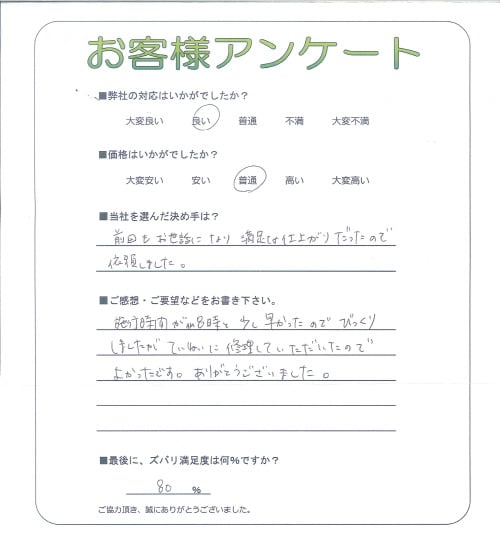 お客様アンケート
■弊社の対応はいかがでしたか？
大変良い 良い 普通 不満 大変不満
■価格はいかがでしたか？
大変安い 安い 普通 高い 大変高い
■当社を選んだ決め手は？
前回もお世話になり 満足な仕上がりだったので
依頼しました。
■ご感想・ご要望などをお書き下さい。
施行時間がAM8時と少し早かったので びっくり
しましたが ていねいに 修理していただいたので
よかったです。ありがとうございました。
■最後に、ズバリ満足度は何％ですか？
80 ％
ご協力頂き、誠にありがとうございました。